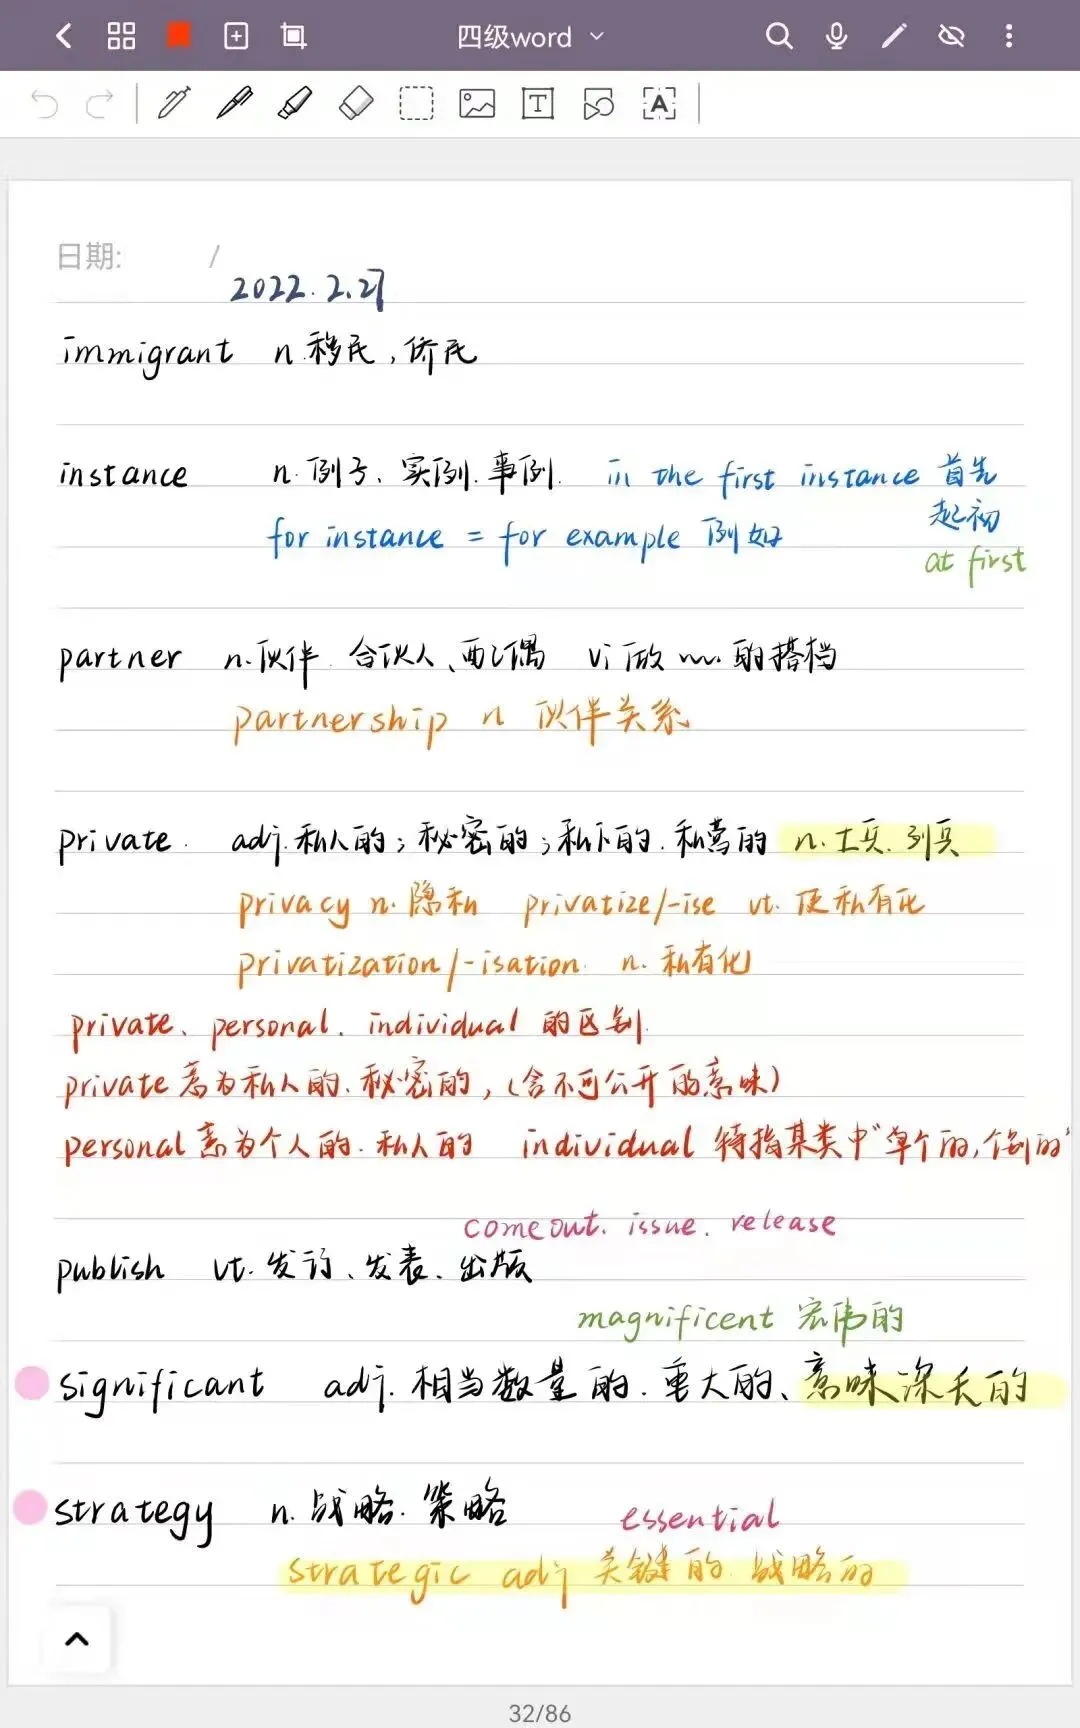 四级word
日期: /
2022.2.27
immigrant n.移民,侨民
instance n.例子、实例.事例. in the first instance 首先
起初
for instance = for example 例如
at first
partner n.伙伴.合伙人、配偶 vi做~~.的搭档
partnership n 伙伴关系
private. adj.私人的;秘密的;私下的.私营的 n.士兵.列兵
privacy n.隐私 privatize/-ise vt.使私有化
privatization/-isation. n.私有化
private、personal.individual 的区别.
private意为私人的.秘密的,(含不可公开的意味)
personal意为个人的.私人的 individual 特指某类中"单个的,个别的"
come out. issue. release
publish vt.发行、发表.出版
magnificent 宏伟的
significant adj.相当数量的.重大的、意味深长的
strategy n.战略.策略
essential
strategic adj 关键的.战略的
32/86